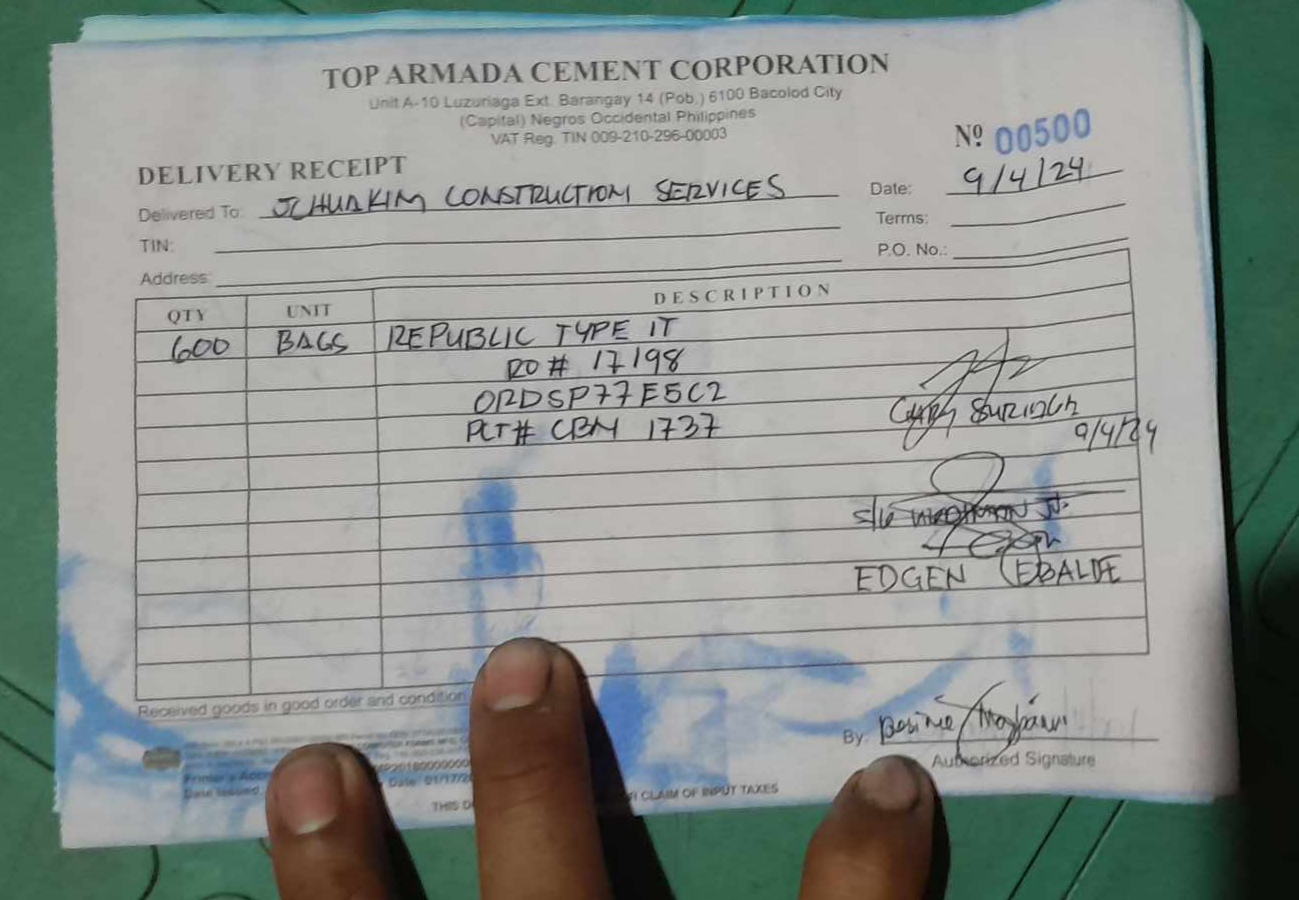 TOP ARMADA CEMENT CORPORATION
Unit A-10 Luzuriaga Ext. Barangay 14 (Pob.) 6100 Bacolod City
(Capital) Negros Occidental Philippines
VAT Reg. TIN 009-210-296-00003
Nº 00500
DELIVERY RECEIPT
Date: 9/4/24
Delivered To: JCHUAKIM CONSTRUCTION SERVICES
Terms:
TIN:
P.O. No.:
Address:
QTY UNIT DESCRIPTION
600 BAGS REPUBLIC TYPE 1T
RO# 17198
ORDSP77E5C2
PLT# CBM 1737
9/4/24
S/G
EDGEN
Received goods in good order and condition
By:
Authorized Signature
Date Issued
Date: 01/17/
THIS CLAIM OF INPUT TAXES